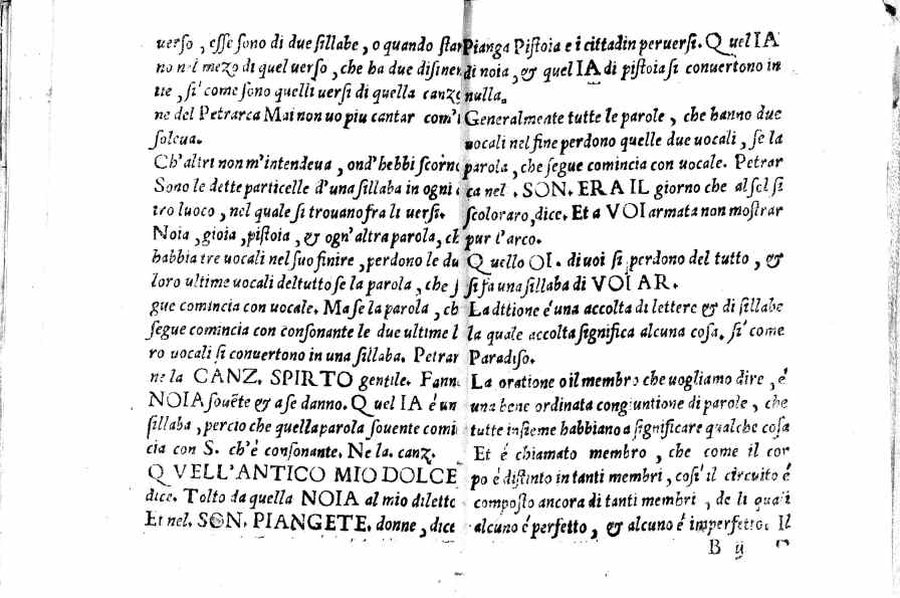 uerſo, eſſe ſono di due ſillabe, o quando ſtan
no nel mezo di quel uerſo, che ha due diſinen
tie, ſi' come ſono quelli uerſi di quella canzo
ne del Petrarca Mai non uo piu cantar com'i
ſoleua.
Ch'altri non m'intendeua, ond'hebbi ſcorno
Sono le dette particelle d'una ſillaba in ogni
tro luoco, nel quale ſi trouano fra li uerſi.
Noia, gioia, piſtoia, & ogn'altra parola, ch
habbia tre uocali nel ſuo finire, perdono le du
loro ultime uocali deltutto ſe la parola, che ſ
gue comincia con uocale. Ma ſe la parola, ch
ſegue comincia con conſonante le due ultime l
ro uocali ſi conuertono in una ſillaba. Petrar
ne la CANZ. SPIRTO gentile. Fann
NOIA ſouẽte & aſe danno. Quel IA é un
ſillaba, percio che quella parola ſouente comi
cia con S. ch'é conſonante. Ne la. canz.
QVELL'ANTICO MIO DOLCE
dice. Tolto da quella NOIA al mio diletto
Et nel. SON. PIANGETE. donne, dice
Pianga Piſtoia e i cittadin peruerſi. Quel IA
di noia, & quel IA di piſtoia ſi conuertono in
nulla.
Generalmente tutte le parole, che hanno due
uocali nel fine perdono quelle due uocali, ſe la
parola, che ſegue comincia con uocale. Petrar
ca nel. SON. ERA IL giorno che al ſol ſi
ſcoloraro, dice. Et a VOI armata non moſtrar
pur l'arco.
Quello OI. di uoi ſi perdono del tutto, &
ſi fa una ſillaba di VOI AR.
La dittione é una accolta di lettere & di ſillabe
la quale accolta ſignifica alcuna coſa. ſi' come
Paradiſo.
La oratione o il membro che uogliamo dire, é
una bene ordinata congiuntione di parole, che
tutte inſieme habbiano a ſignificare qualche coſa
Et é chiamato membro, che come il cor
po é diſtinto in tanti membri, coſi' il circuito é
compoſto ancora di tanti membri, de li quali
alcuno é perfetto, & alcuno é imperfetto. Il
B ij